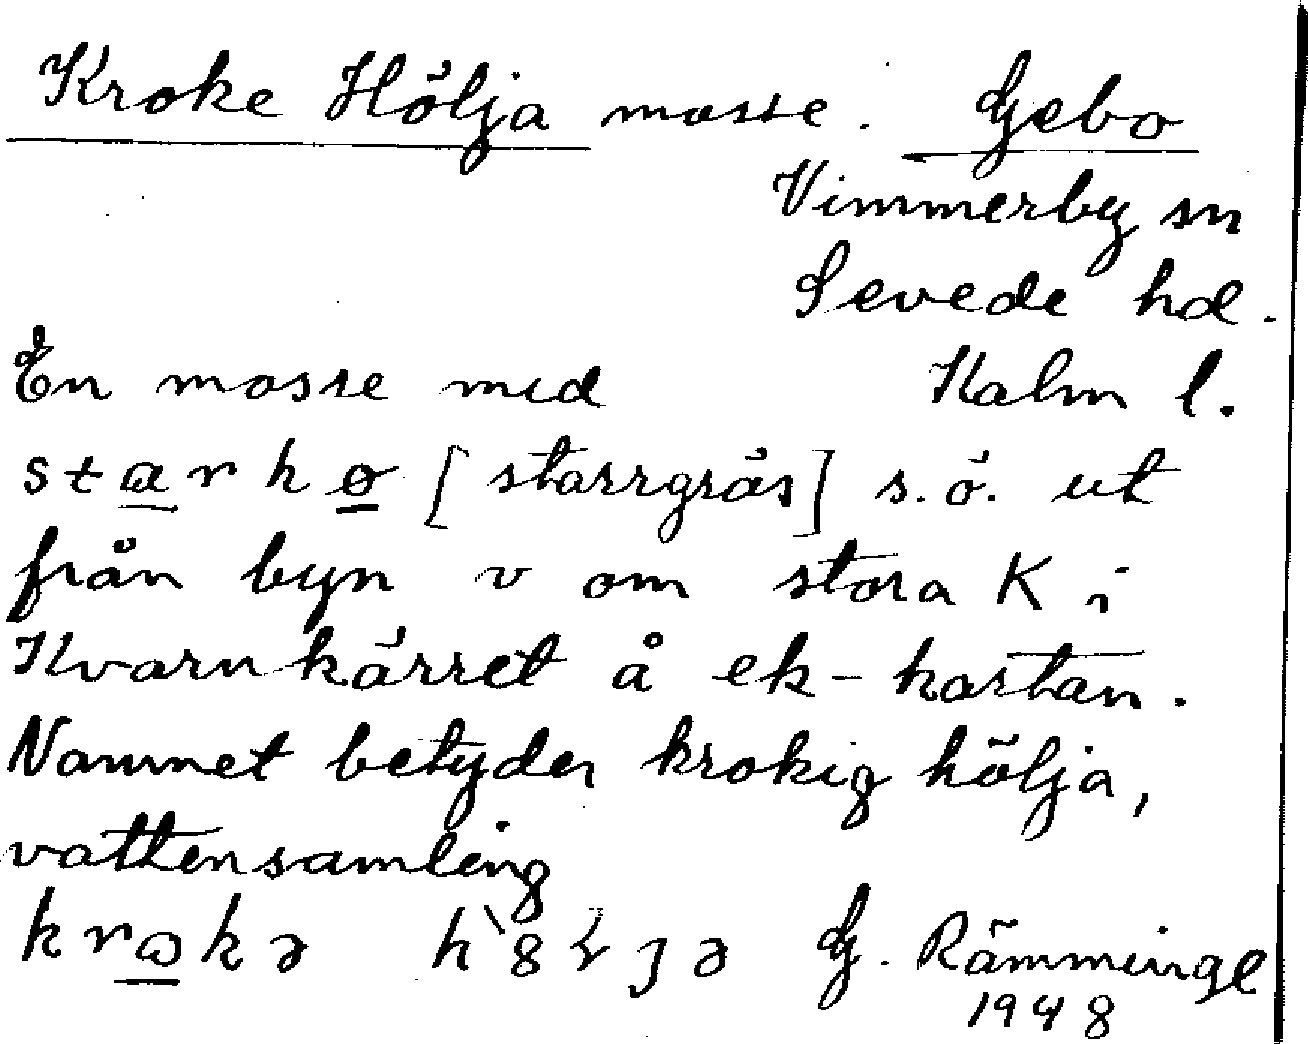 Kroke Hölja mosse. Gebo
Vimmerby sn
Sevede hd.
En mosse med Kalm l.
starhø [starrgräs] s.ö. ut
från byn v om stora K i
Kvarnkärret å ek-kartan.
Namnet betyder krokig hölja,
vattensamling
G. Rämminge
1948